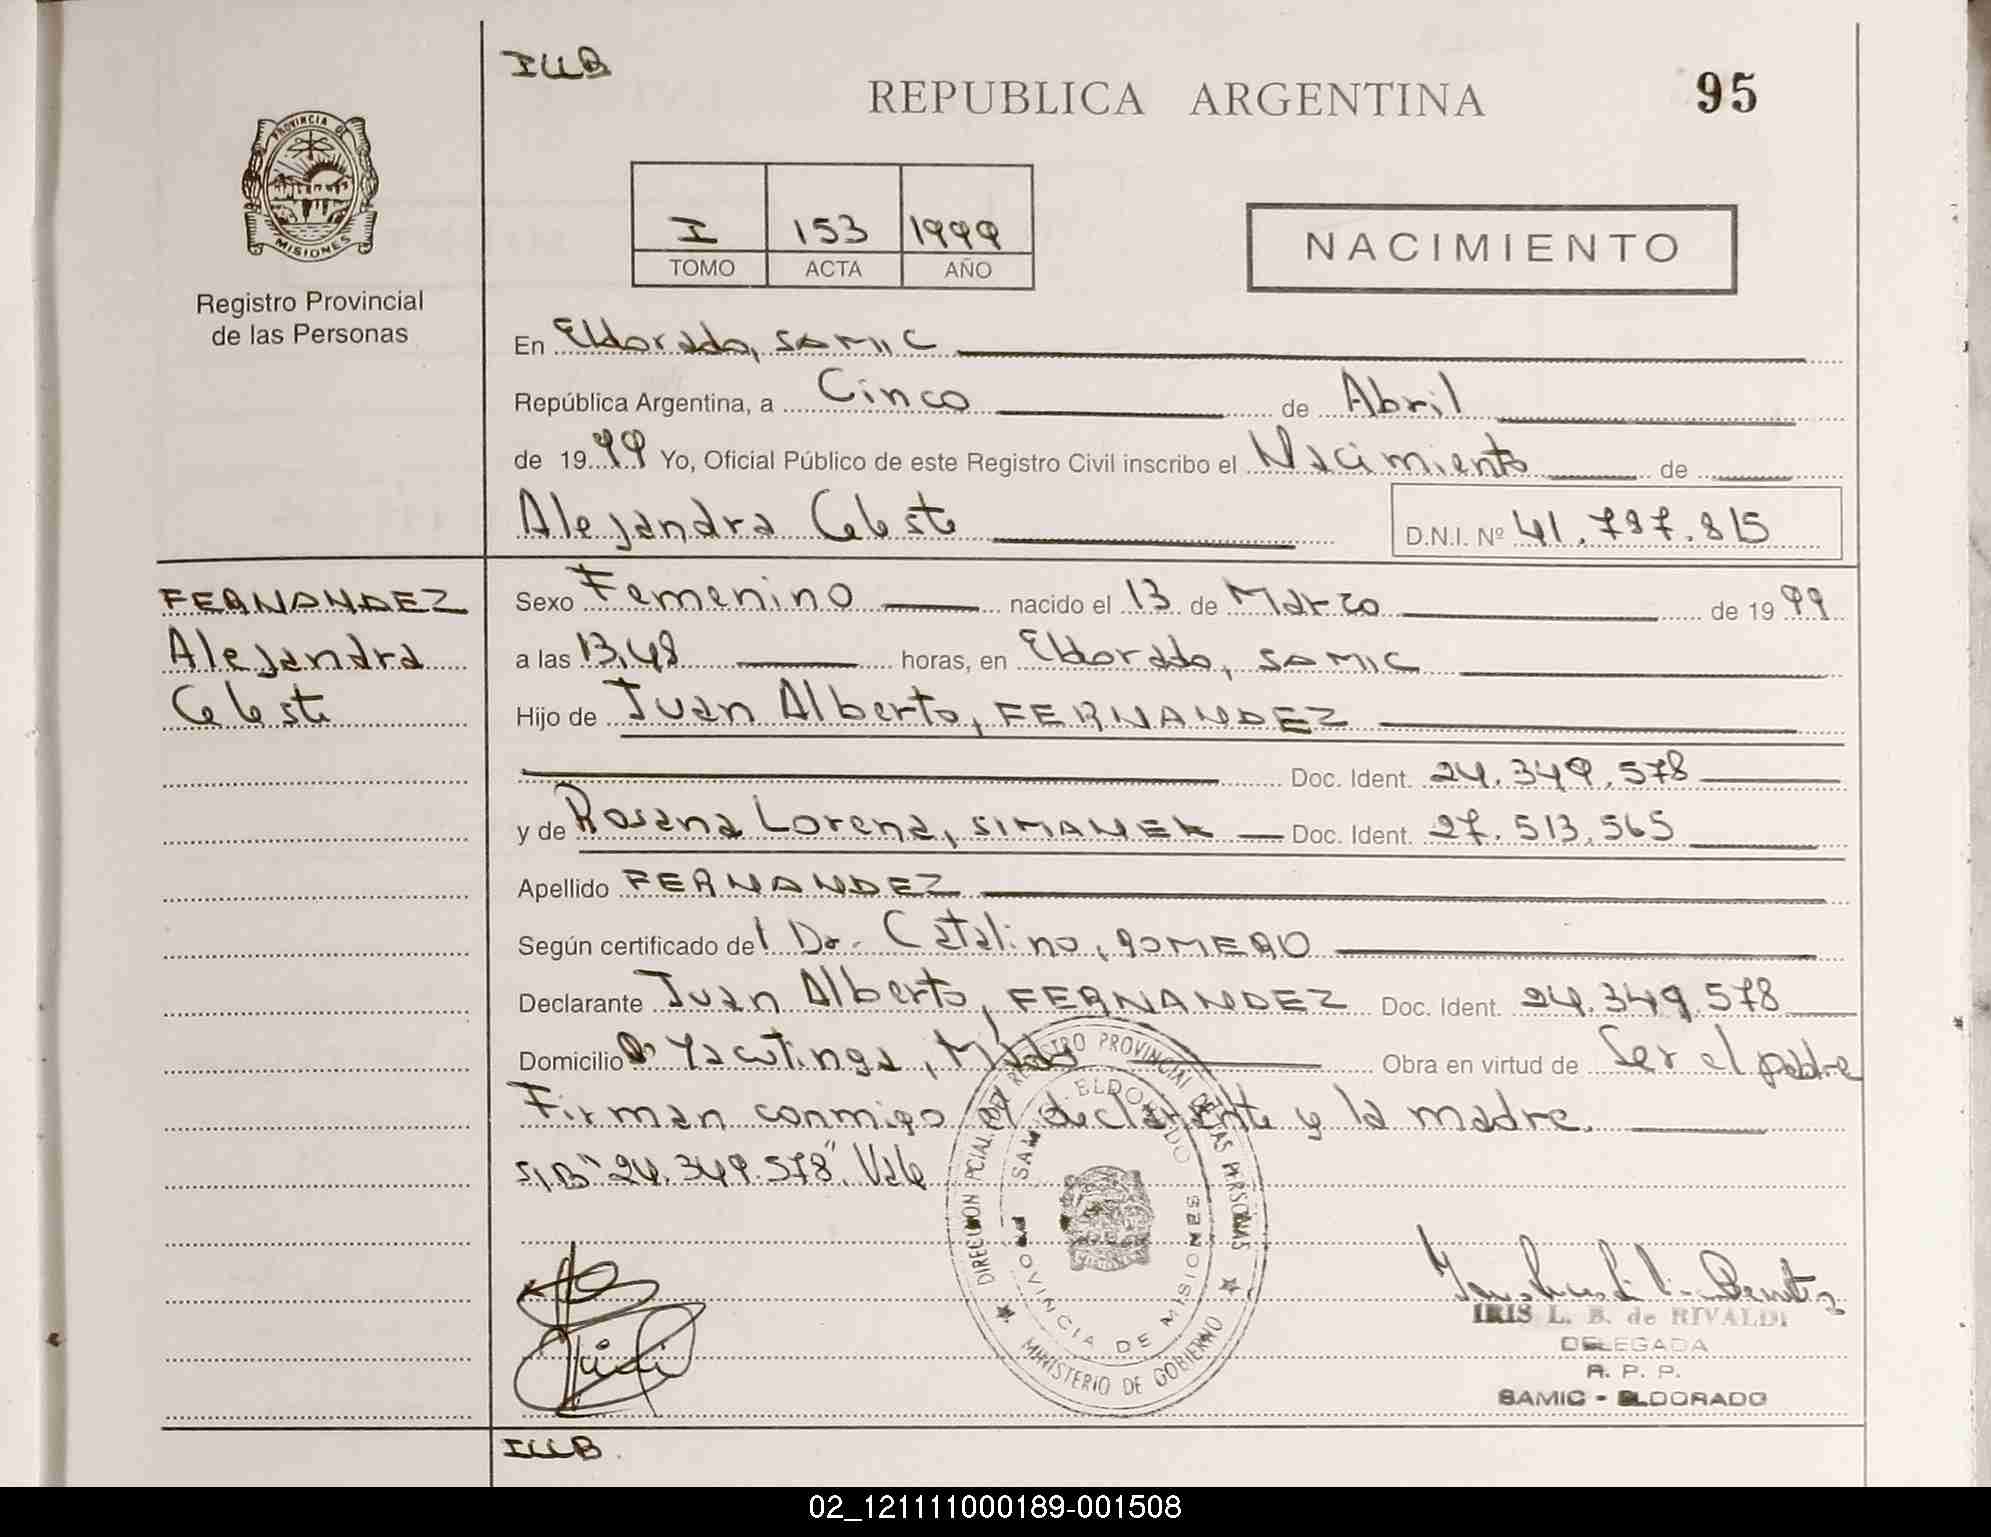 ILLB
REPUBLICA ARGENTINA
95
PROVINCIA DE
MISIONES
Registro Provincial
de las Personas
I 153 1999
TOMO ACTA AÑO
NACIMIENTO
En Eldorado, SAMIC
República Argentina, a Cinco de Abril
de 1999 Yo, Oficial Público de este Registro Civil inscribo el Nacimiento de
Alejandra Celeste D.N.I. Nº 41.797.815
FERNANDEZ
Alejandra
Celeste
Sexo Femenino nacido el 13 de Marzo de 1999
a las 13,48 horas, en Eldorado, SAMIC
Hijo de Juan Alberto, FERNANDEZ
Doc. Ident. 24.349.578
y de Rosana Lorena, SIMANEK Doc. Ident. 27.513.565
Apellido FERNANDEZ
Según certificado del Dr. Catalino, ROMERO
Declarante Juan Alberto, FERNANDEZ Doc. Ident. 24.349.578
Domicilio Yacutinga, Obra en virtud de Ser el padre
Firman conmigo el declarante y la madre.
S/B "24.349.578". Vale
DIRECCION PCIAL. DEL REGISTRO PROVINCIAL DE LAS PERSONAS
MINISTERIO DE GOBIERNO
ELDORADO
PROVINCIA DE MISIONES
IRIS L. B. de RIVALDI
DELEGADA
R. P. P.
SAMIC - ELDORADO
ILLB.
02_121111000189-001508